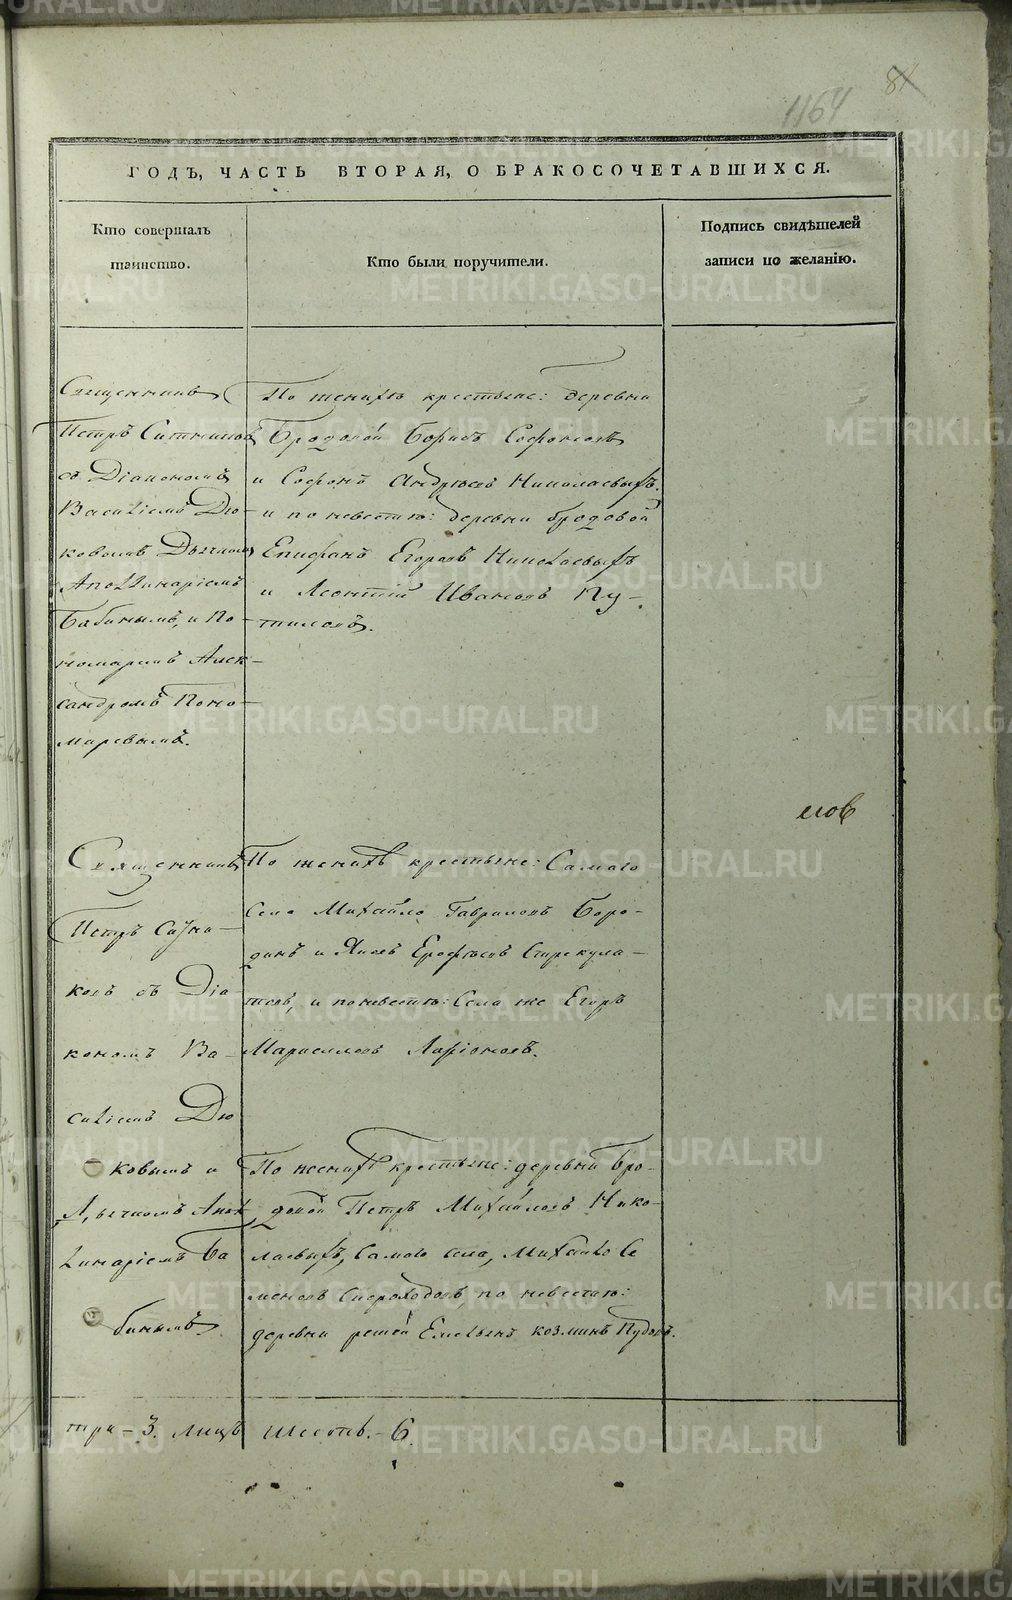 1164
84
ГОДЪ, ЧАСТЬ ВТОРАЯ, О БРАКОСОЧЕТАВШИХСЯ.
Кто совершалъ
таинство.
Кто были поручители.
Подпись свидѣтелей
записи по желанію.
Священникъ
Петръ Ситниковъ
съ Діакономъ
Василіемъ Дю-
ковымъ Дьячкомъ
Аполлинаріемъ
Бабинымъ, и По-
номаремъ Алек-
сандромъ Поно-
маревымъ.
По женихѣ крестьяне: деревни
Бродовой Борисъ Софоновъ
и Софонъ Андрѣевъ Николаевыхъ.
и по невестѣ: деревни бродовой
Епифанъ Егоровъ Николаевыхъ
и Леонтій Ивановъ Пу-
тиловъ.
егов
Священникъ
Петръ Ситни-
ковъ съ Діа-
кономъ Ва-
силіемъ Дю
ковымъ и
Дьячкомъ Апол
линаріемъ Ба
бинымъ
По женихѣ крестьяне: Самаго
Села Михайло Гавриловъ Боро-
динъ и Яковъ Ерофѣевъ
и по невестѣ: Села же Егоръ
Ларіоновъ.
По женихѣ крестьяне: деревни Бро-
довой Петръ Михайловъ Нико-
лаевыхъ, Самаго села, Михайло Се
меновъ Скороходовъ, по невестѣ:
деревни Емельянъ козминъ Пудовъ.
три - 3. Лицъ шесть. - 6.
METRIKI.GASO-URAL.RU